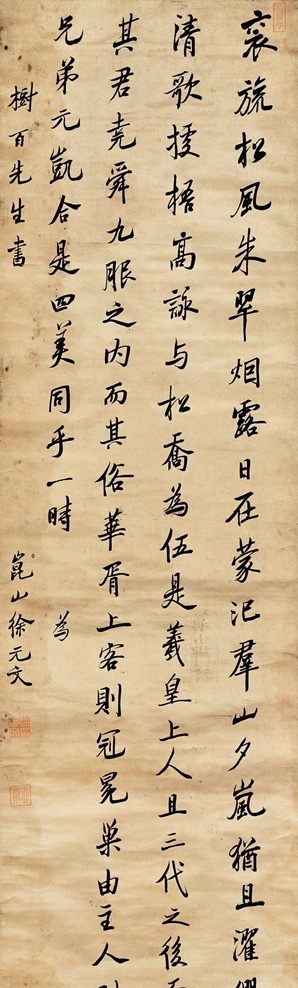 袞旒松風朱翠烟露日在蒙汜羣山夕嵐猶且濯
清歌據梧高詠与松喬為伍是羲皇上人且三代之後
其君堯舜九服之內而其俗華胥上客則冠冕巢由主人
兄弟元凱合是四美同乎一時 為
樹百先生書 崑山徐元文